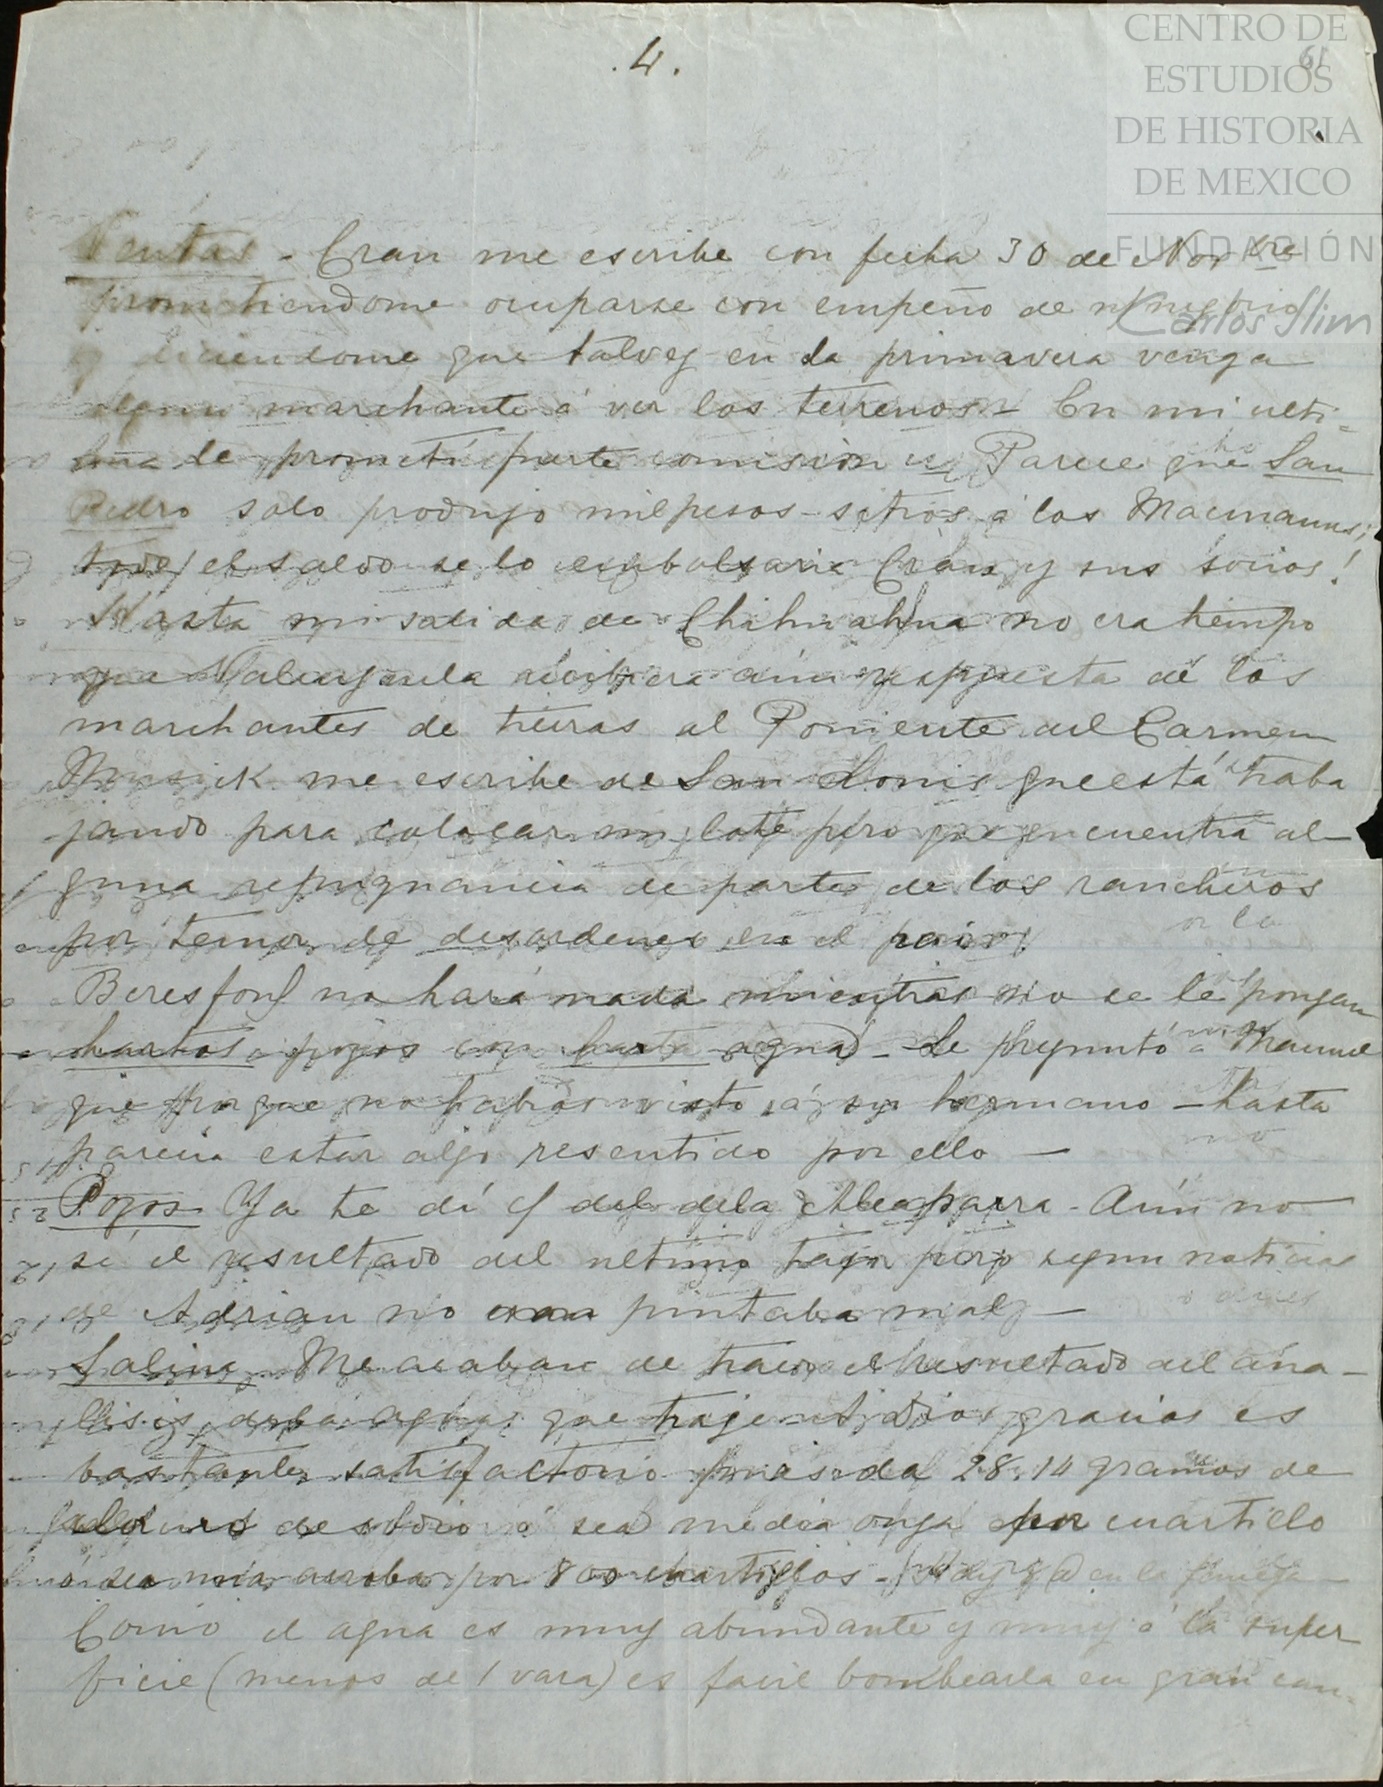 .4.
61
CENTRO DE
ESTUDIOS
DE HISTORIA
DE MEXICO
FUNDACIÓN
Carlos Slim
Ventas - Cran me escribe con fecha 30 de Novbre
prometiendome ocuparse con empeño de n/ negocio
y diciendome que talvez en la primavera venga
algun marchante á ver los terrenos - En mi ulti-
ma le prometí parte comision. Parece que San
Pedro solo produjo mil pesos sitios á los Macmanus;
todo el saldo se lo embolsaria Cran y sus socios!
Hasta mi salida de Chihuahua no era tiempo
que Valenzuela recibiera aún respuesta de los
marchantes de tierras al Poniente del Carmen
Musick me escribe de San Louis que está traba
jando para colocar un lote pero que encuentra al-
guna repugnancia de parte de los rancheros
por temor de desordenes en el pais.
Beresford no hará nada mientras no se le pongan
hartos pozos con harta agua - Le preguntó á Manuel
que porque no habias visto á su hermano - hasta
parecia estar algo resentido por ello -
Pozos Ya te dí c/ del de la Alcaparra - Aún no
sé el resultado del ultimo tajo pero segun noticias
de Adrian no pintaba mal -
Salina - Me acaban de traer el resultado del ana-
lisis de la agua que traje - A Dios gracias es
bastante satisfactorio pues da 28.14 gramos de
cloruro de sodio ó sea media onza por cuartillo
ó sea una arroba por 800 cuartillos - en la fanega
Como el agua es muy abundante y muy á la super
ficie (menos de 1 vara) es facil bombearla en gran can-